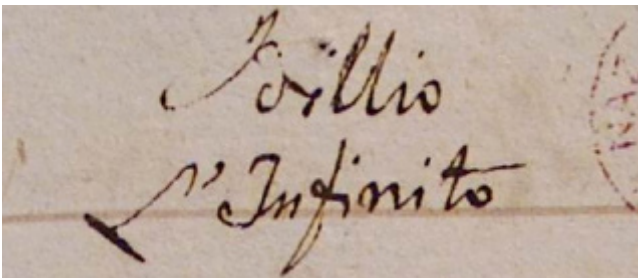 Idillio
L'Infinito